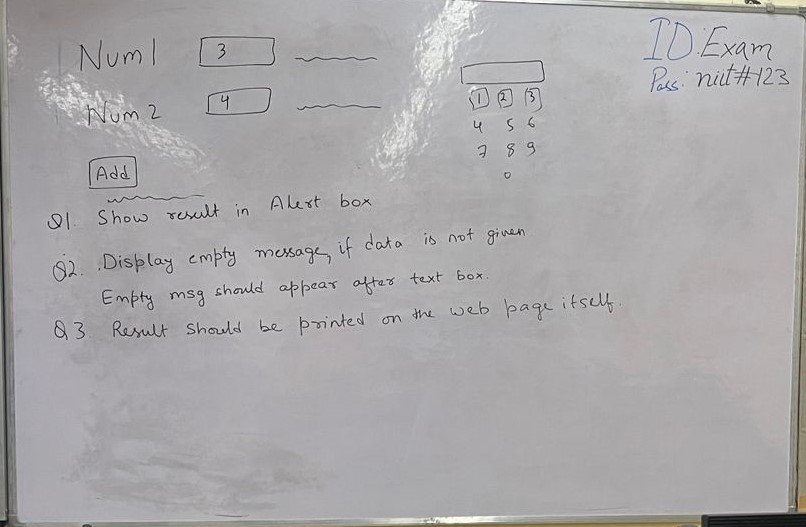 Num1 3
Num 2 4
Add
1 2 3
4 5 6
7 8 9
0
ID: Exam
Pass: niit#123
Q1. Show result in Alert box
Q2. Display empty message, if data is not given
Empty msg should appear after text box.
Q3 Result should be printed on the web page itself.